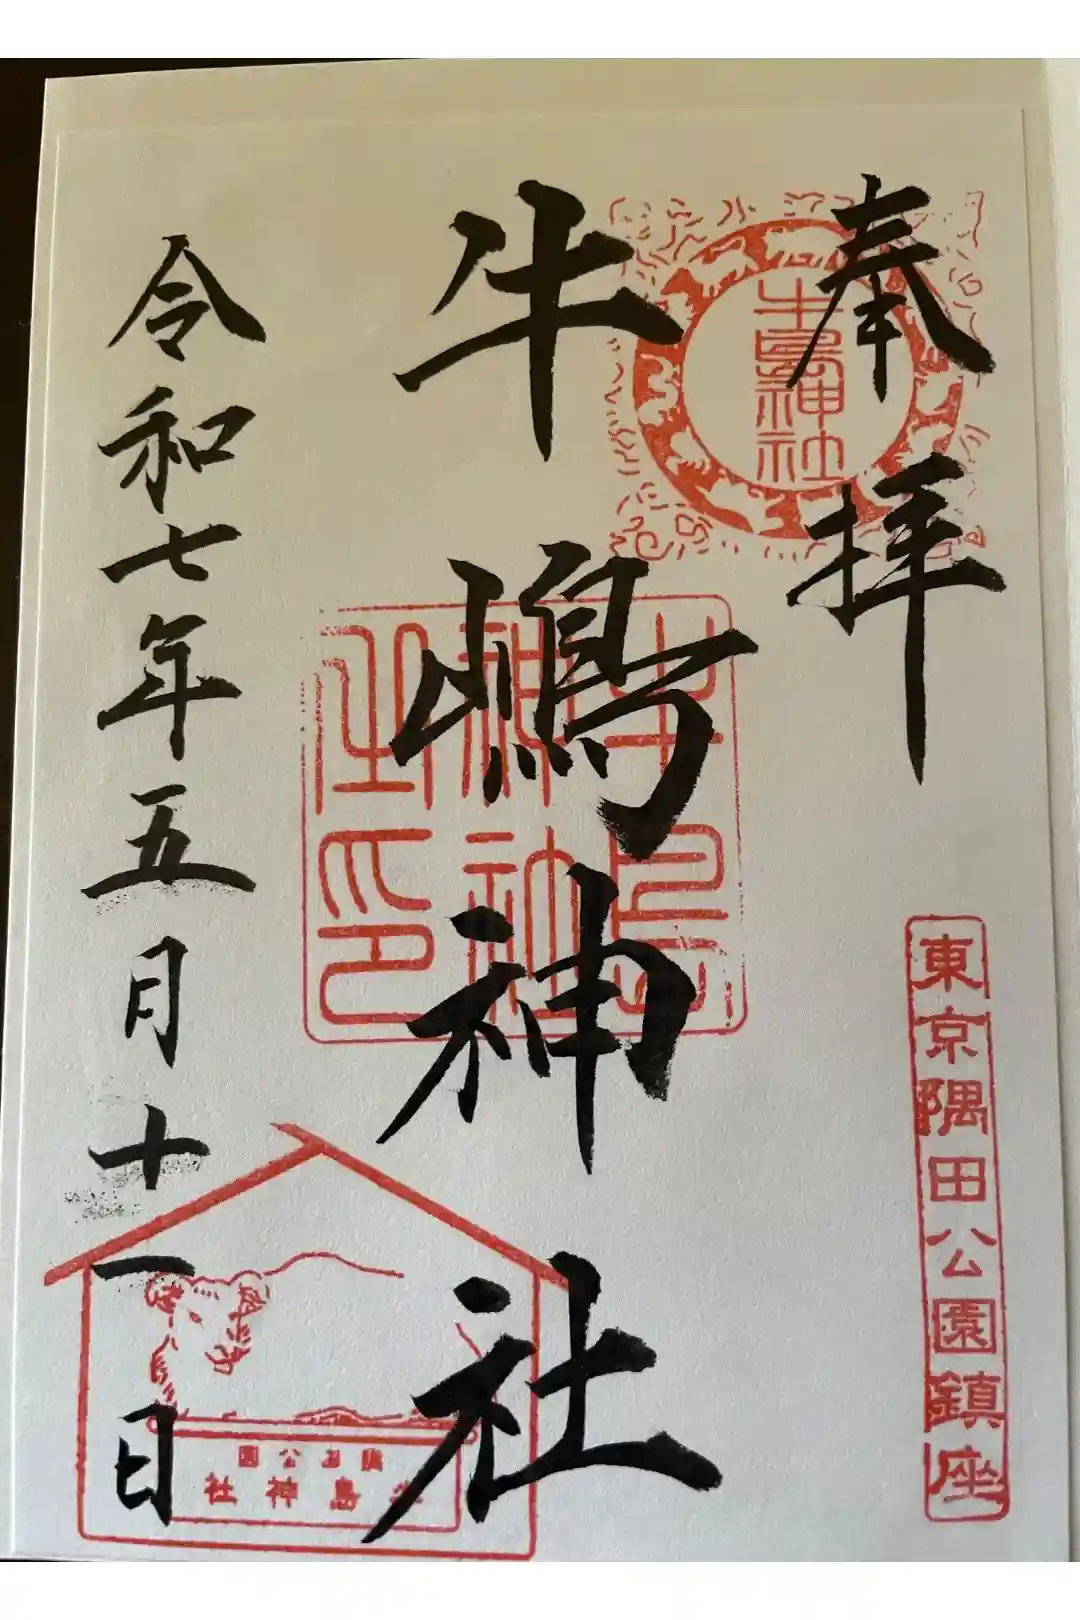 奉拝
牛島神社
東京隅田公園鎮座
牛嶋神社
牛島神社之印
令和七年五月十一日
隅田公園
牛島神社